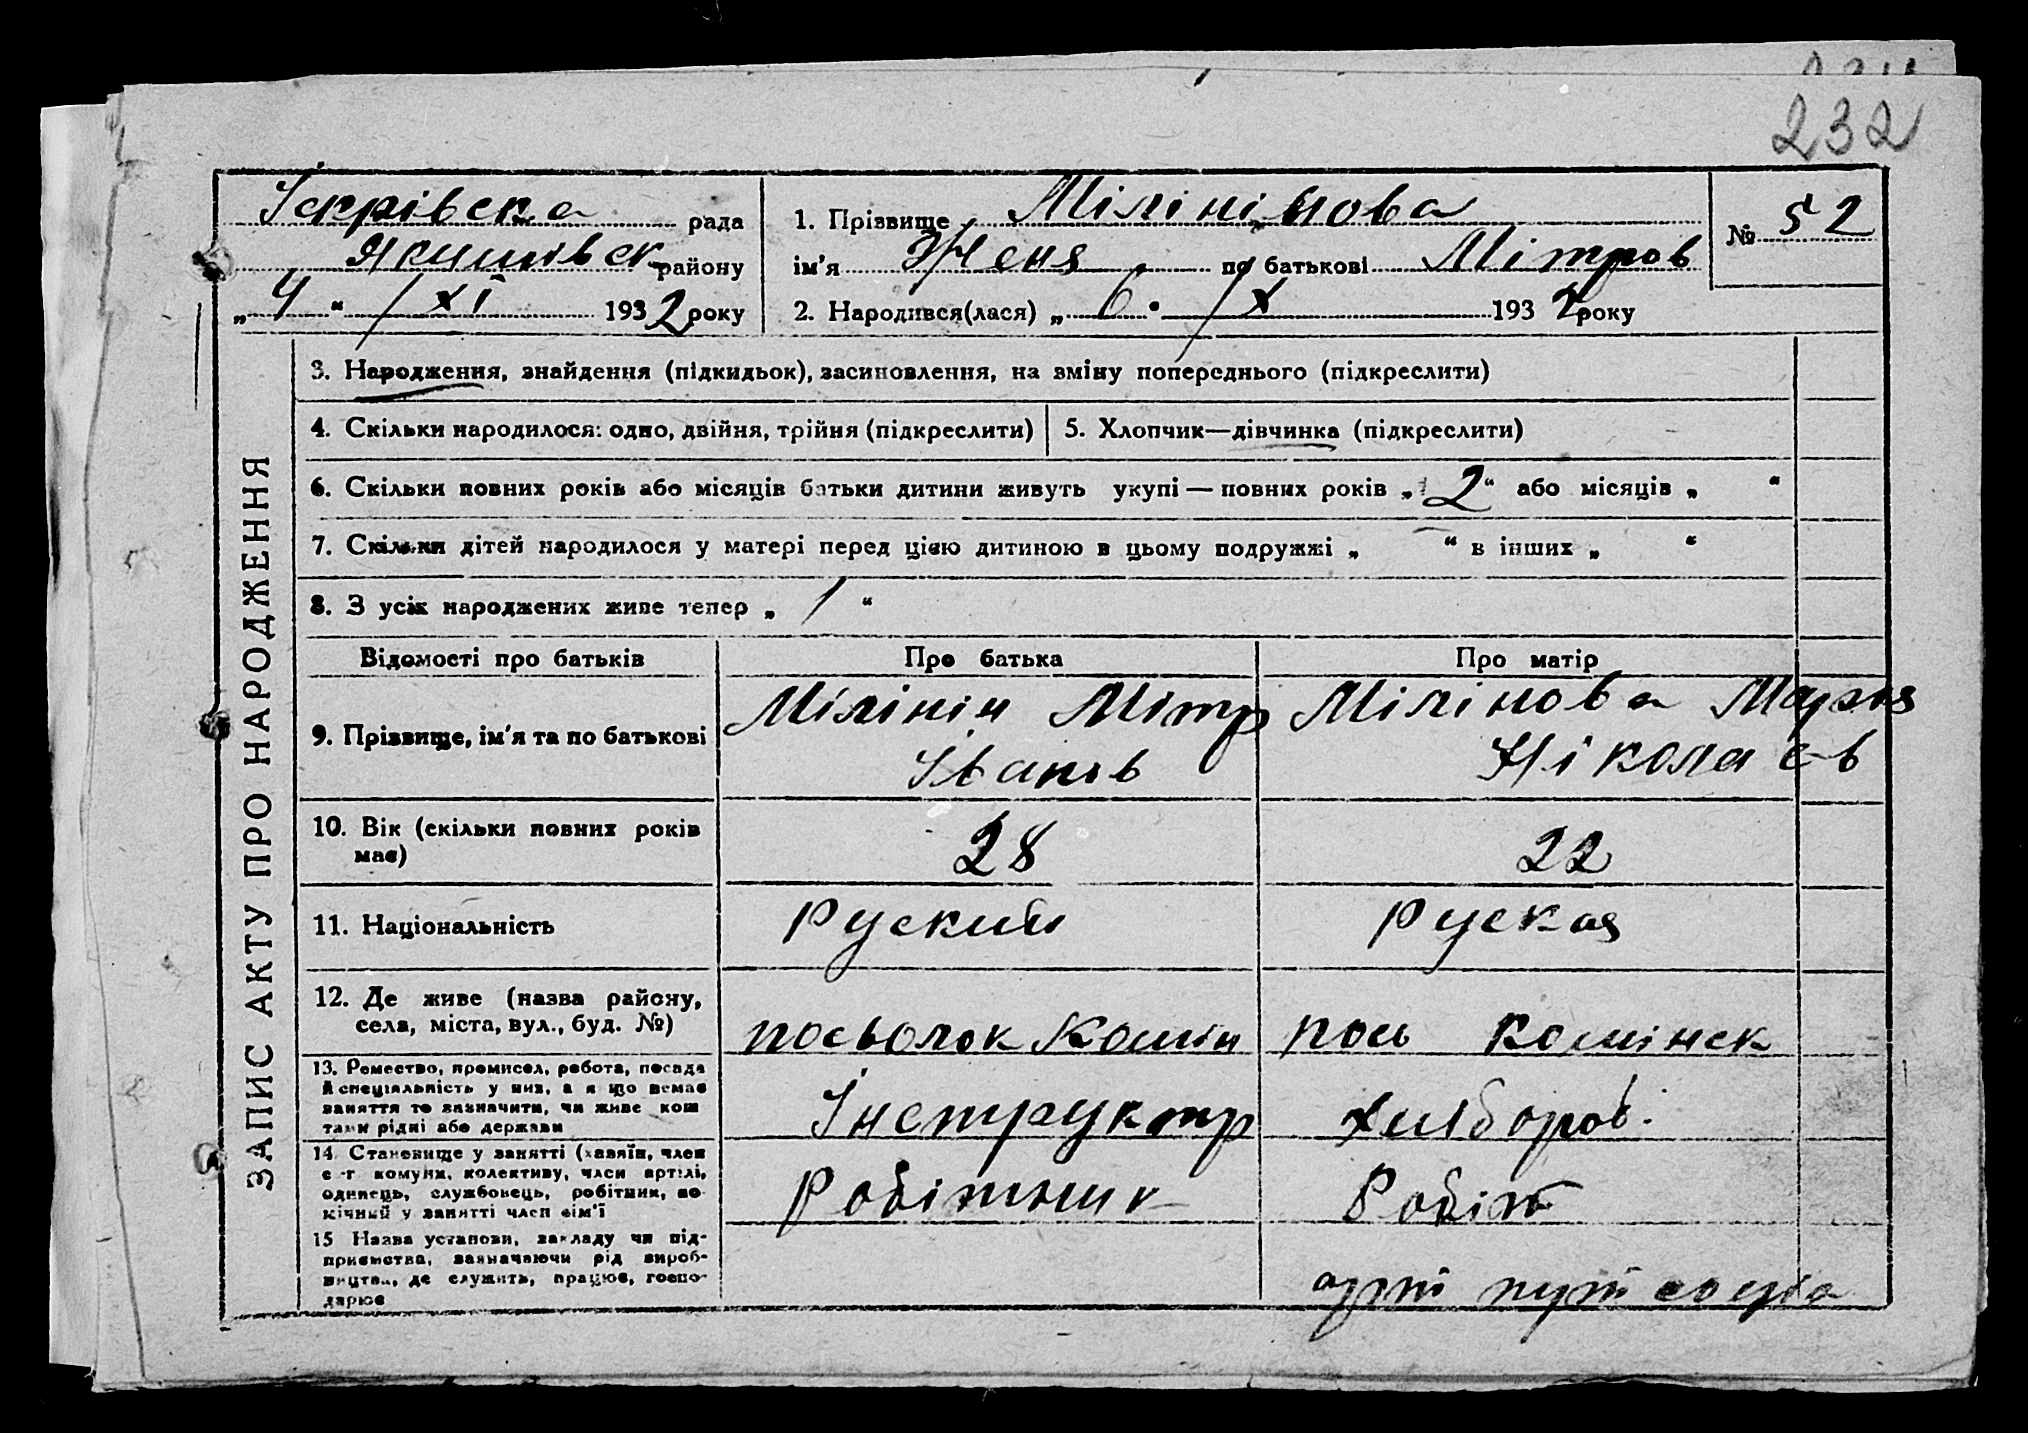 232
Іскрівска рада
Якимівск району
„ 4 “ / XI 1932 року
1. Прізвище Мілінінова
ім'я Женя по батькові Мітров
2. Народився(лася) „ 6 “ / X 1932 року
№ 52
ЗАПИС АКТУ ПРО НАРОДЖЕННЯ
3. Народження, знайдення (підкидьок), засиновлення, на зміну попереднього (підкреслити)
4. Скільки народилося: одно, двійня, трійня (підкреслити)
5. Хлопчик—дівчинка (підкреслити)
6. Скільки повних років або місяців батьки дитини живуть укупі — повних років „ 2 “ або місяців „ “
7. Скільки дітей народилося у матері перед цією дитиною в цьому подружжі „ “ в інших „ “
8. З усіх народжених живе тепер „ 1 “
Відомості про батьків
Про батька
Про матір
9. Прізвище, ім'я та по батькові
Мілінін Мітр
Іванов
Мілінова Марія
Нікола єв
10. Вік (скільки повних років
має)
28
22
11. Національність
Руский
Руская
12. Де живе (назва району,
села, міста, вул., буд. №)
посьолок Комін
пось Комінск
13. Ремество, промисел, робота, посада
й спеціяльність у них, а я що немає
заняття то зазначити, чи живе кош
тами рідні або держави
Інструктр
Хлиборов.
14. Становище у занятті (хазяїн, член
с -г комуни, колективу, член артілі,
одинець, службовець, робітник, по
мічний у занятті член сім'ї
Робітник
Робіт
15 Назва установи, закладу чи під-
приємства, зазначаючи рід вироб-
ництва, де служить, працює, госпо-
дарює
арт пут